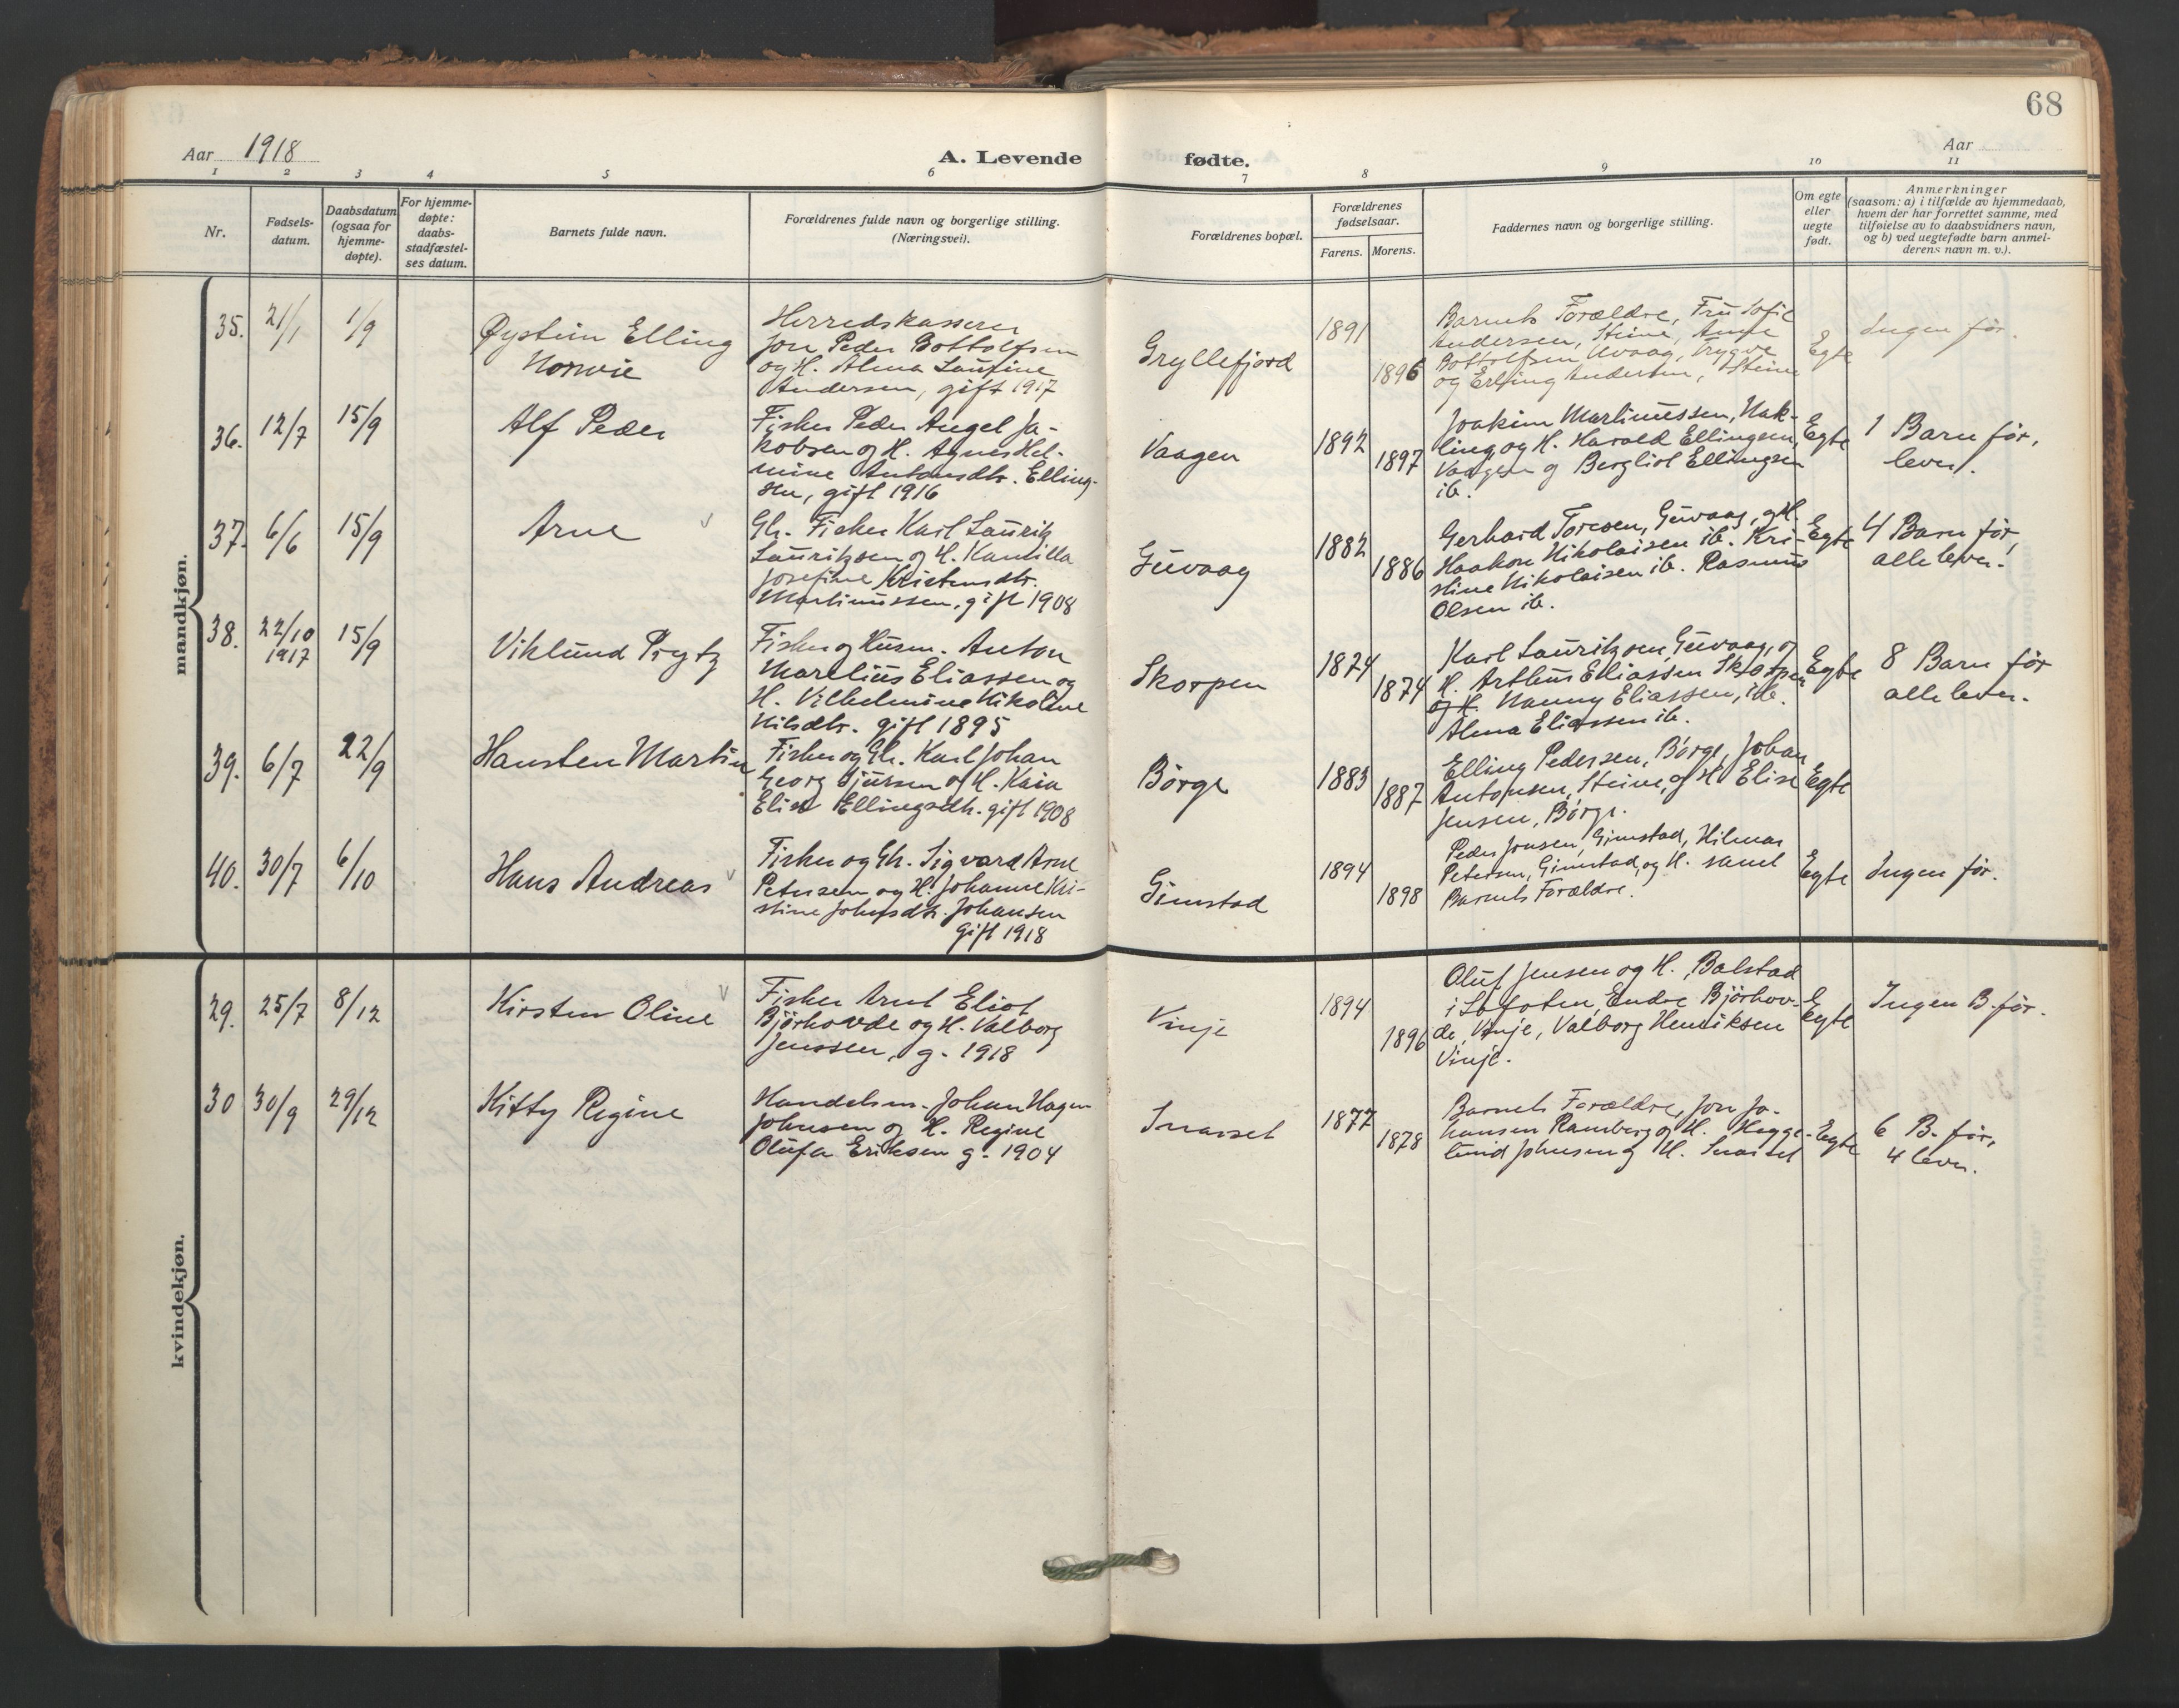 68
Aar 1918
A. Levende fødte.
Aar
1 2 3 4 5 6 7 8 9 10 11
Nr.
Fødsels-
datum.
Daabsdatum
(ogsaa for
hjemme-
døpte).
For hjemme-
døpte:
daabs-
stadfæstel-
ses datum.
Barnets fulde navn.
Forældrenes fulde navn og borgerlige stilling.
(Næringsvei).
Forældrenes bopæl.
Forældrenes
fødselsaar.
Farens. Morens.
Faddernes navn og borgerlige stilling.
Om egte
eller
uegte
født.
Anmerkninger
(saasom: a) i tilfælde av hjemmedaab,
hvem der har forrettet samme, med
tilføielse av to daabsvidners navn,
og b) ved uegtefødte barn anmel-
derens navn m. v.).
mandkjøn.
35. 21/1 1/9
Øystein Elling
Herredskasserer
Jon Peder Bottolfsen
og H. Alma Laufine
Andersen, gift 1917
Gryllefjord
1891
1896
Barnets Forældre, Fru Sofie
Andersen, Steine, Anne
Bottolfsen Uvaag, Trygve
og Erling Andersen, Steine
Egte
Ingen før.
36. 12/7 15/9
Alf Peder
Fisker Peder Angel Ja-
kobsen og H. Agnes Hel-
mine Antonsdtr. Elling-
sen, gift 1916
Vaagen
1892
1897
Joakim Martinussen, Nak-
ling og H. Harald Ellingsen,
Vaagen og Bergliot Ellingsen
ib.
Egte
1 Barn før,
lever.
37. 6/6 15/9
Arne
Gb. Fisker Karl Lauritz
Lauritzsen og H. Kantilla
Josefine Kristensdtr.
Martinussen, gift 1908
Guvaag
1882
1886
Gerhard Toresen, Guvaag, og H.
Haakon Nikolaisen ib. Kri-
stine Nikolaisen ib. Rasmus
Olsen ib.
Egte
4 Barn før,
alle lever.
38. 22/10 1917 15/9
Viklund Prytz
Fisker og Husm. Anton
Marelius Eliassen og
H. Vilhelmine Nikoline
Nilsdtr. gift 1895
Skorpen
1874
1874
Karl Lauritzsen, Guvaag, og
H. Arthur Eliassen Skorpen
og H. Nanny Eliassen, ib.
Alma Eliassen ib.
Egte
8 Barn før
alle lever.
39. 6/7 22/9
Hansten Martin
Fisker og Gb. Karl Johan
Georg Sjursen og H. Kaia
Elise Ellingsdtr. gift 1908
Børge
1883
1887
Elling Pedersen, Børge, Johan
Antonsen, Steine, og H. Elise
Jensen, Børge.
Egte
40. 30/7 6/10
Hans Andreas
Fisker og Gb. Sigvard Arne
Petersen og H. Johanne Kri-
stine Johnsdtr. Johansen
gift 1918
Gimstad
1894
1898
Peder Jonsen, Gimstad, Hilmar
Petersen, Gimstad, og H. samt
Barnets Forældre.
Egte
Ingen før.
kvindekjøn.
29. 25/7 8/12
Kirsten Oline
Fisker Arnt Eliot
Bjørhovde og H. Valborg
Jenssen, g. 1918
Vinje
1894
1896
Oluf Jensen og H., Balstad
i Lofoten, Endre Bjørhov-
de, Vinje, Valborg Henriksen
Vinje.
Egte
Ingen B. før.
30 30/9 29/12
Kitty Regine
Handelsm. Johan Hagen
Johnsen og H. Regine
Olufa Eriksen g. 1904
Snarset
1877
1878
Barnets Forældre, Jon Jo-
hansen Ramberg og H. Hegge-
lund Johnsen og H. Snarset
Egte
6 B. før,
4 lever.